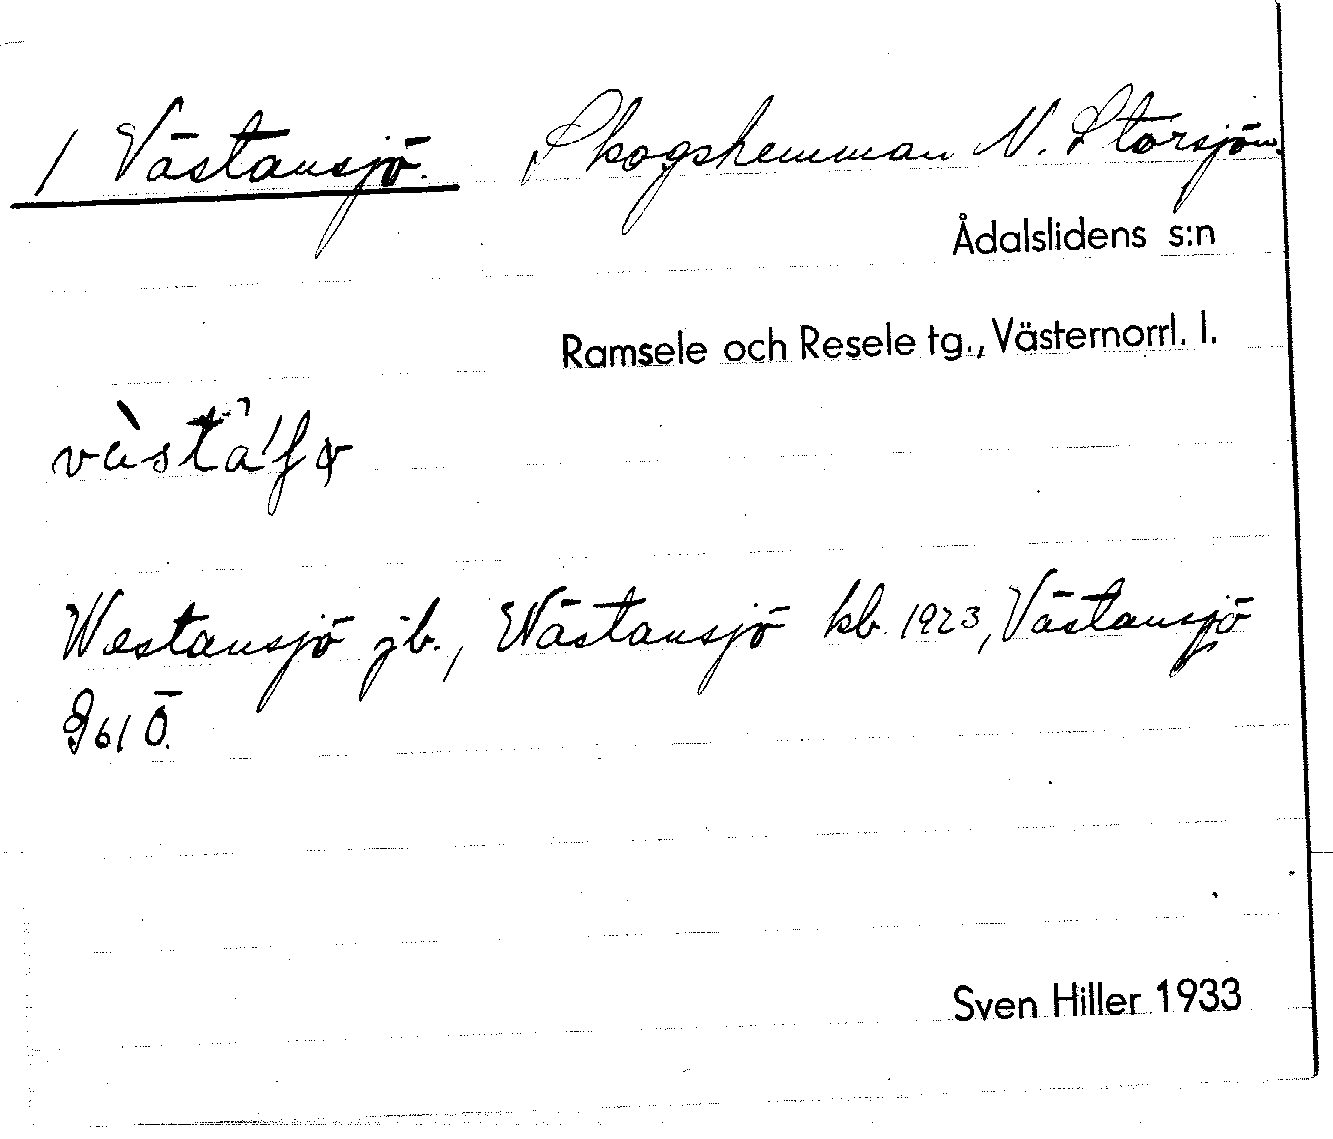 1 Västansjö. Skogshemman N. Storsjön.
Ådalslidens s:n
Ramsele och Resele tg., Västernorrl. l.
Westansjö jb., Wästansjö kb. 1923, Västansjö
961 Ö.
Sven Hiller 1933